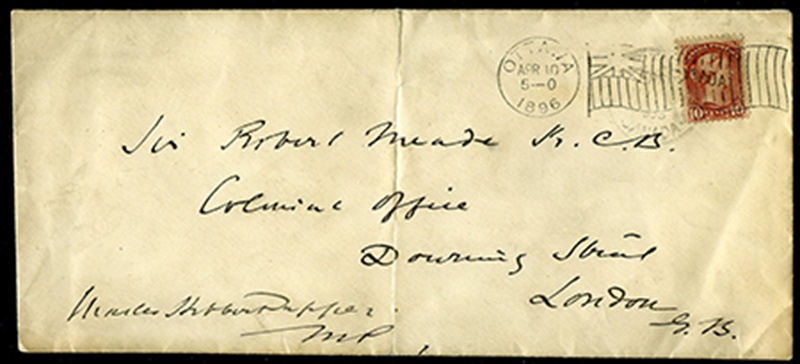 OTTAWA
APR 10
5—0
1896
CANADA
10 CENTS
Sir Robert Meade K.C.B.
Colonial Office
Downing Street
London
G.B.
Charles Hibbert Tupper.
MP